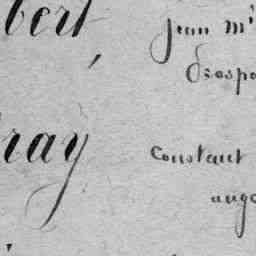 bert Jean M
Prospe
ray Constant
ange